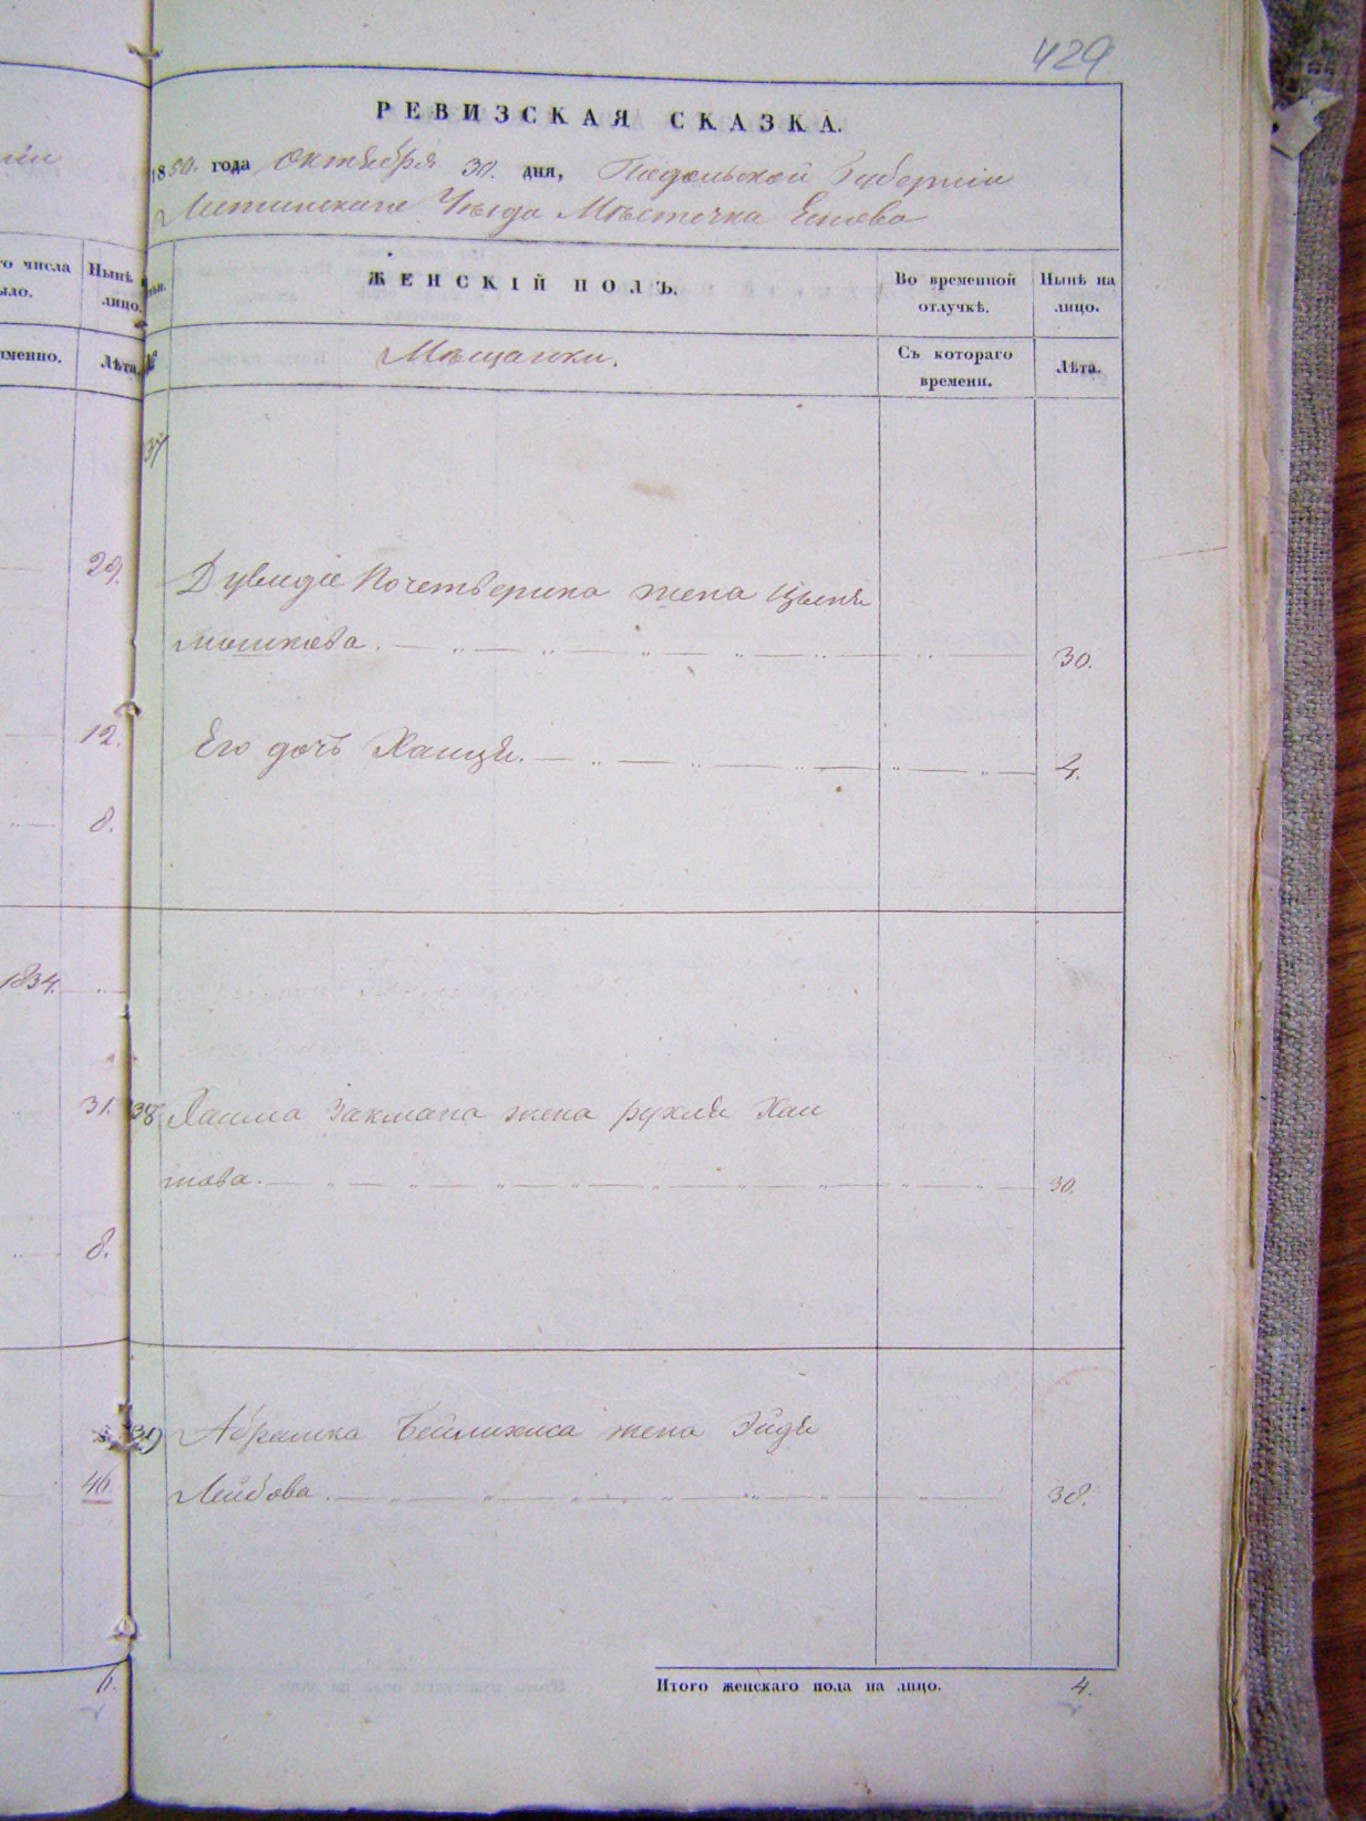 429
РЕВИЗСКАЯ СКАЗКА.
1850. года Октября 30. дня, Подольской Губерніи
Литинскаго Уѣзда Мѣстечка
го числа
ыло.
Нынѣ
лицо.
именно.
Лѣта.
ЖЕНСКІЙ ПОЛЪ.
Во временной
отлучкѣ.
Нынѣ на
лицо.
№
Мѣщанки.
Съ котораго
времени.
Лѣта.
37
29.
Почетверика жена Цыпя
Мошкова. 30.
12.
Его дочь Ханця. 4.
8.
1834.
31.
38 Хаима Закмана жена рухля Хаи
мова. 30.
8.
39 Абрамка жена Эйдя
46.
Лейбова. 38.
6.
Итого женскаго пола на лицо. 4.